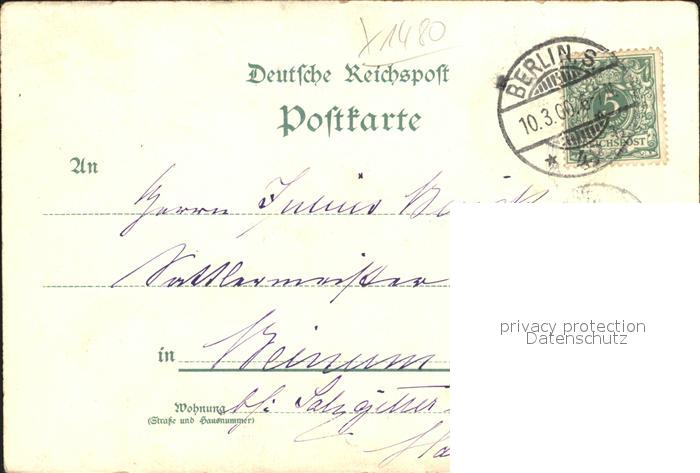 x1480
Deutsche Reichspost
Postkarte
BERLIN. S.
10.3.00.
5
REICHSPOST
42
An
Herrn Julius
Sattlermeister
privacy protection
Datenschutz
in Beinum
Wohnung b/: Salzgitter
(Straße und Hausnummer)